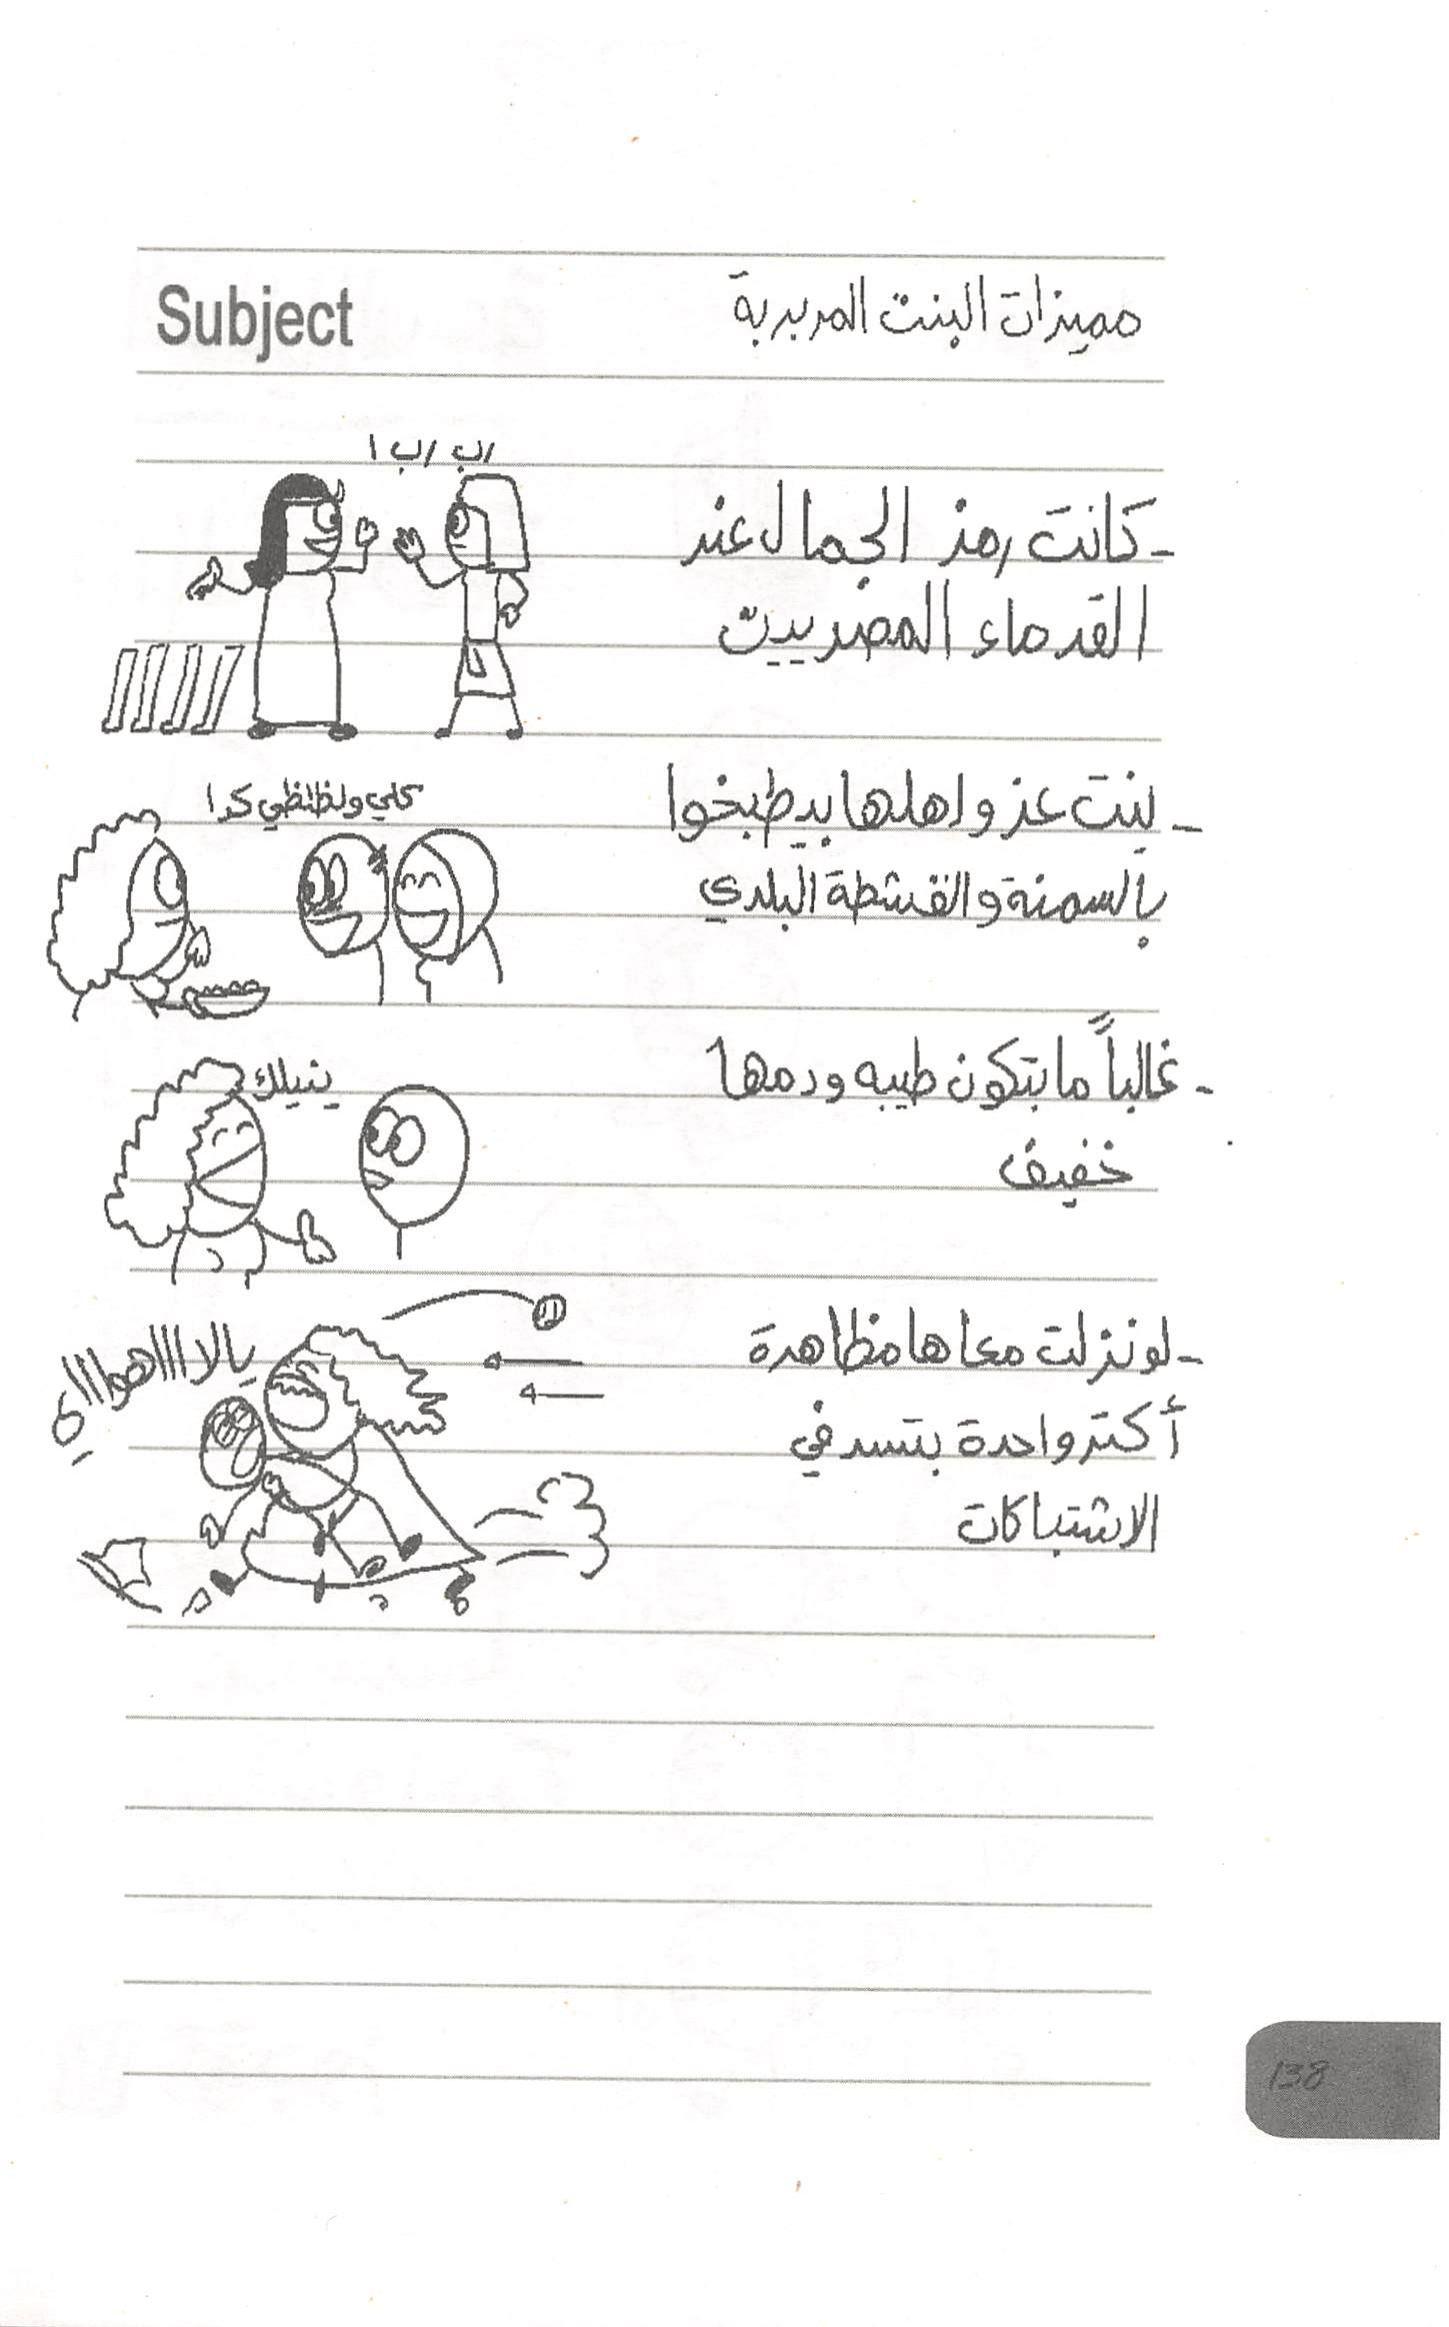 Subject
مميزات البنت المربربة
اب اب ا
- كانت رمز الجمال عند
القدماء المصريين
- بنت عز واهلها بيطبخوا
بالسمنة والقشطة البلدي
كلي ولظلظي كدا
- غالباً ما بتكون طيبه ودمها
خفيف
ينيلك
- لو نزلت معاها مظاهرة
أكتر واحدة بتسد في
الاشتباكات
يالااااهوااااي
138